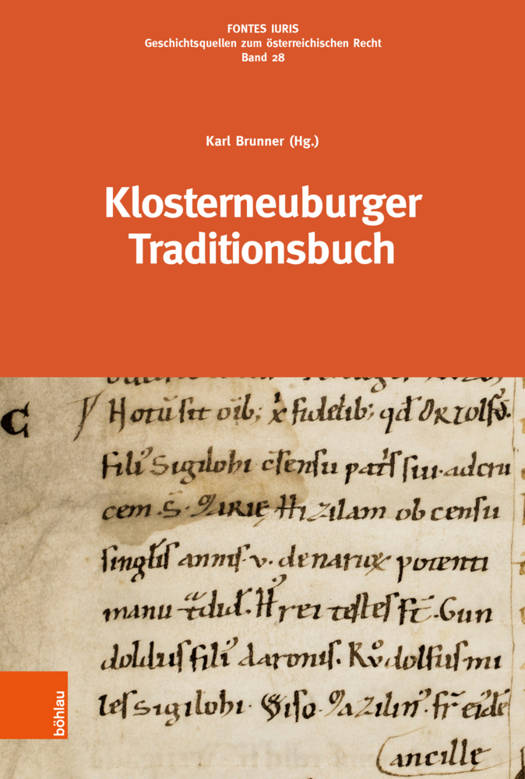 FONTES IURIS
Geschichtsquellen zum österreichischen Recht
Band 28
Karl Brunner (Hg.)
Klosterneuburger
Traditionsbuch
C
Notū sit oīb; x fidelib; qd Ortolfꝰ
filiꝰ Sigilohi c̄sensu pat̄s sui adcru
cem S. MARIE Hizilam ob censū
singlīs annis v. denariox potenti
manu t̄did. Hꝰ rei testes st̄. Gun
doldus filiꝰ aaronis. Rvodolfus mi
les sigilohi. Wiso. Mazilinꝰ. fr̄ eiꝰdē
ancillę
böhlau